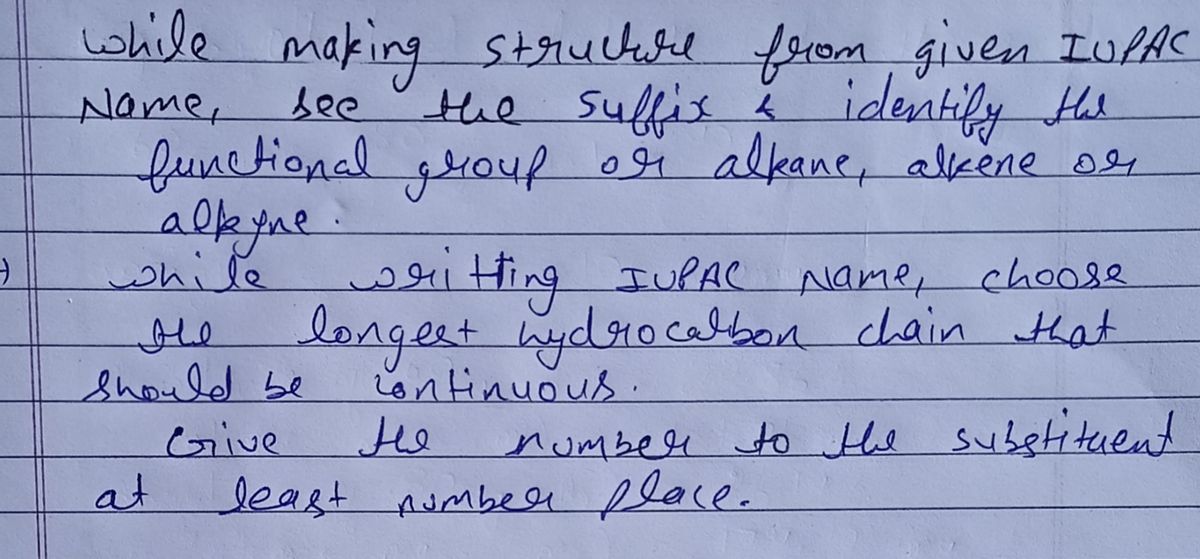 while making structure from given IUPAC
Name, see the suffix & identify the
functional group or alkane, alkene or
alkyne.
while writting IUPAC Name, choose
the longest hydrocarbon chain that
should be continuous.
Give the number to the substituent
at least number place.